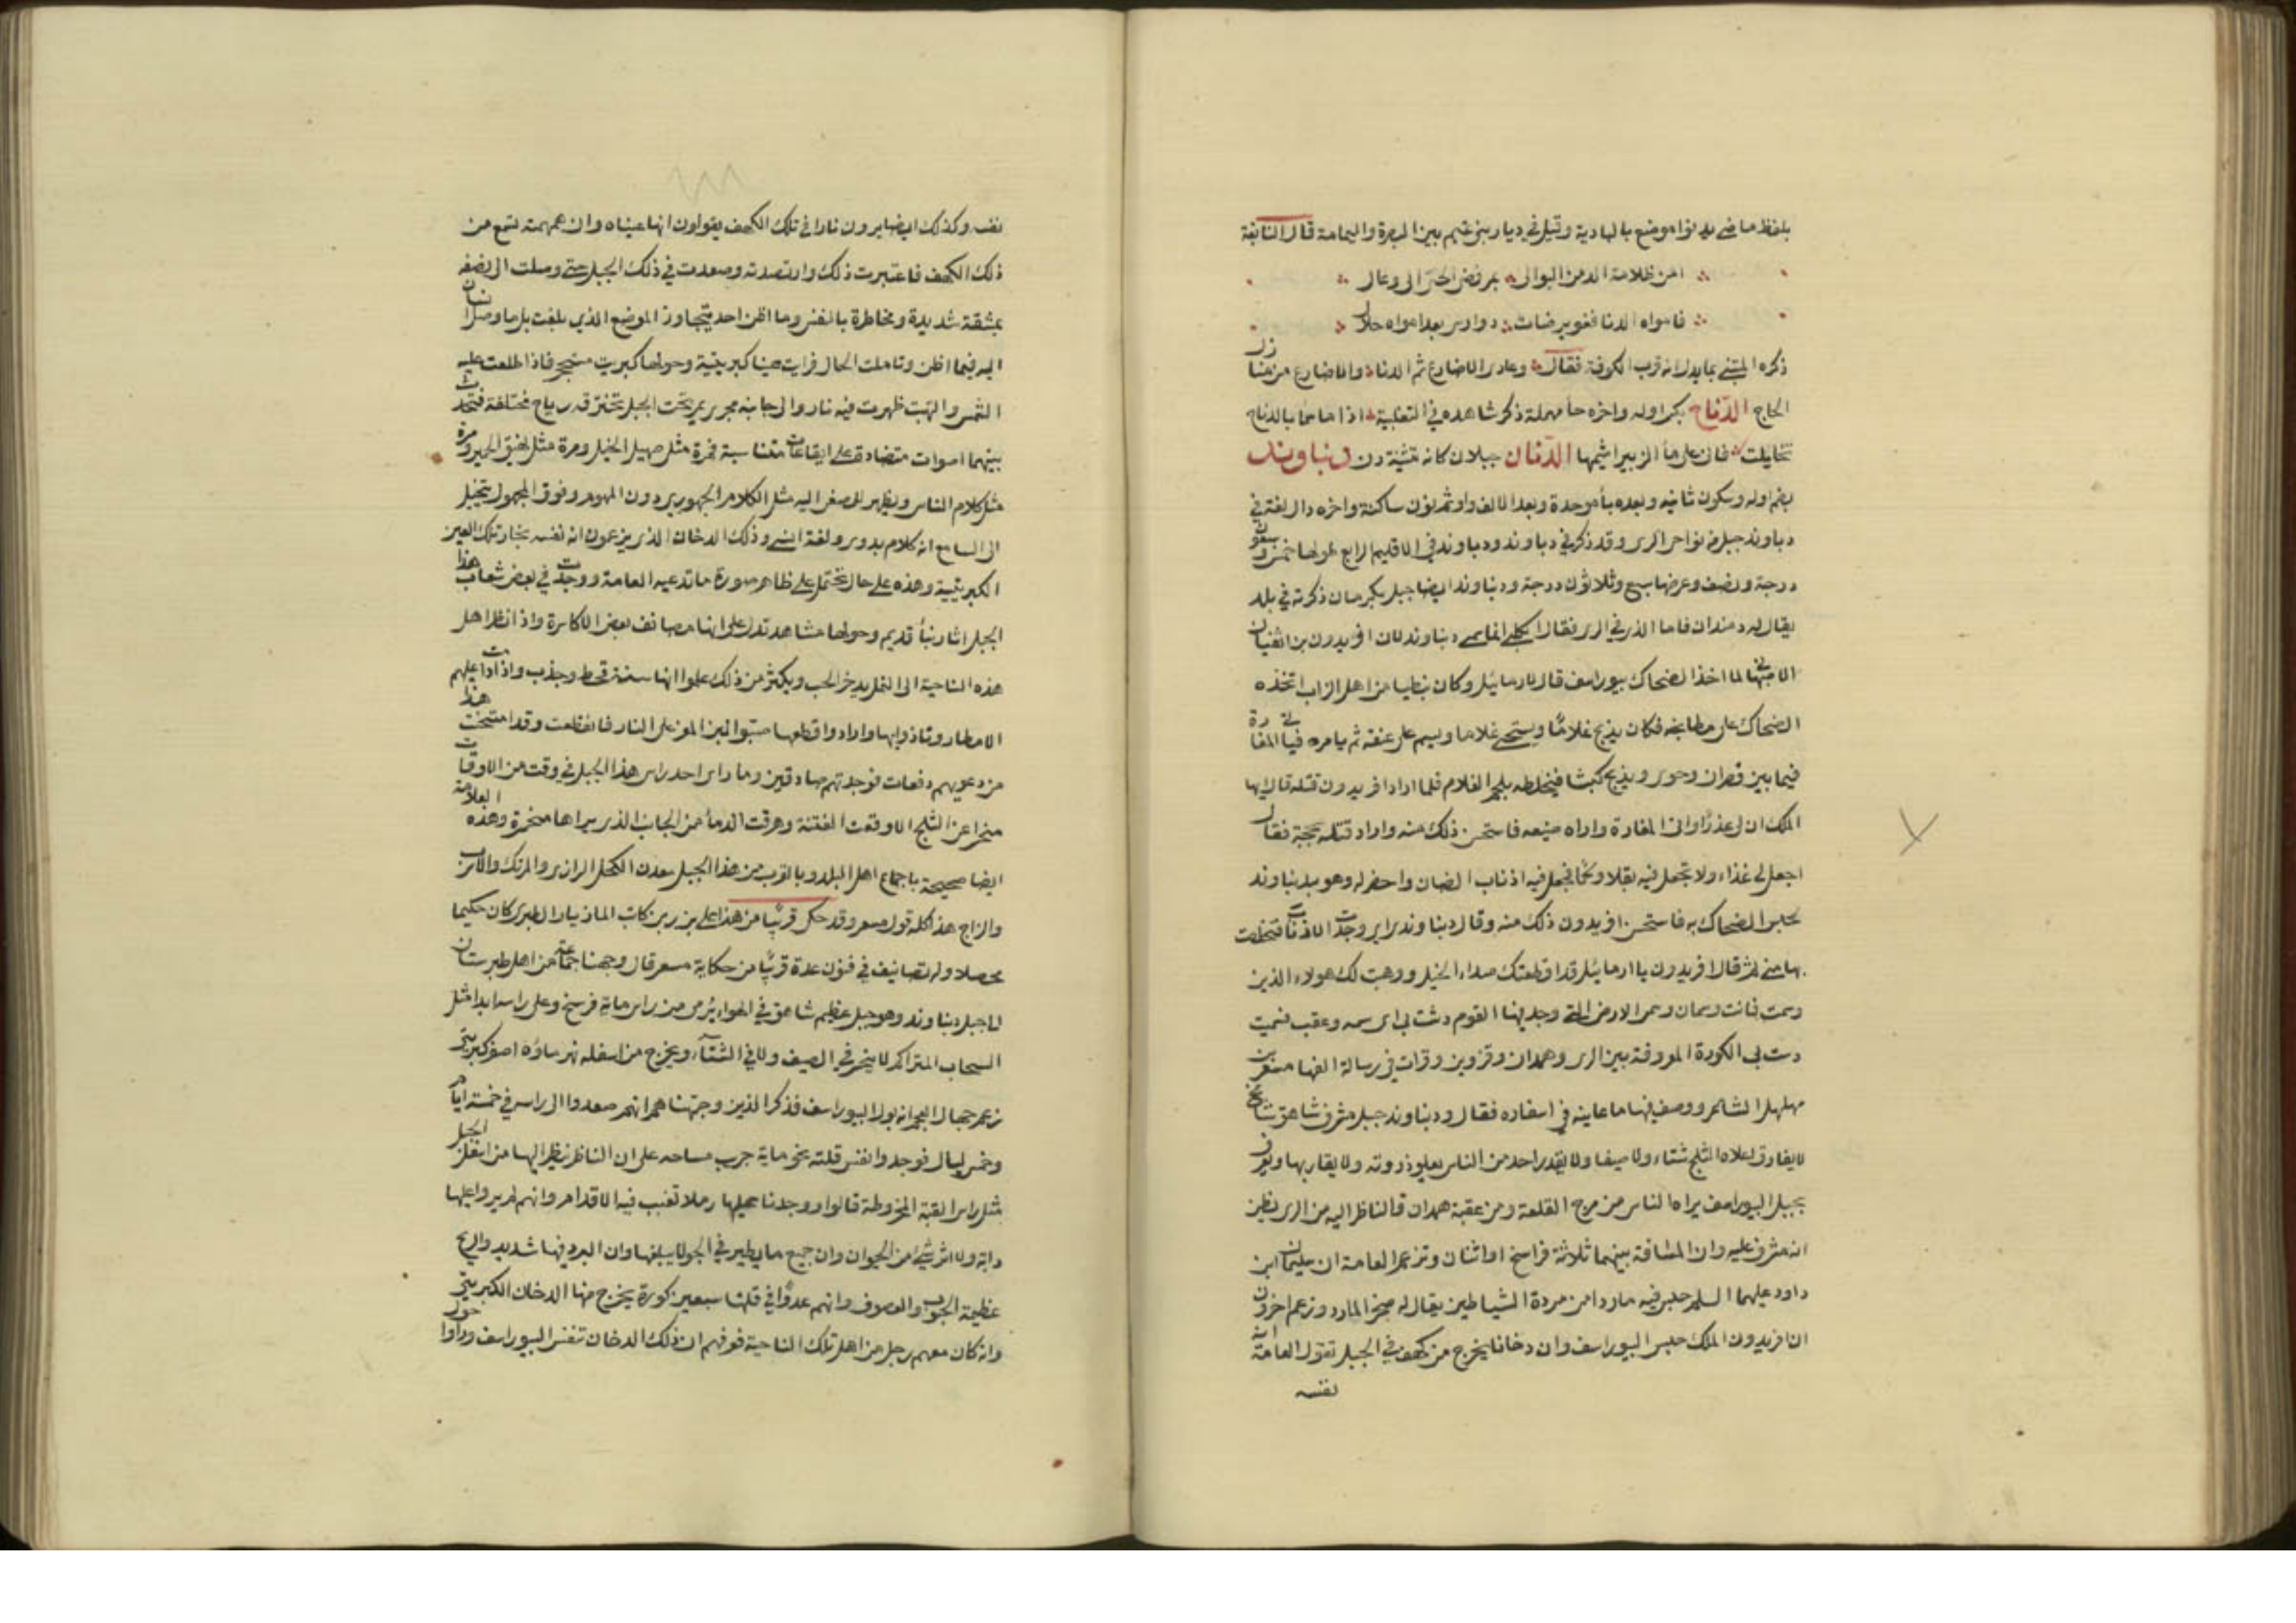 بلفظ ماضي يدنوا موضع بالبادية وقيل في ديار بني تميم بين البصرة واليمامة قال النابغة
امن ظلامة الدمن البوالى بمرفض الحبي الى وعال
فامواه الدنا فعويرضات دوارس بعد امواه حلال
ذكره المتنبي بما يدل انه قرب الكوفة فقال وعادى الاضارع ثم الدنا والاضارع من منازل
الحاج الدناح بكسر اوله واخره حا مهملة ذكر شاهده في الثعلبية اذا ما سما بالدناح
تخايلت فانى على ما الزبير اشيمها الدنان جبلان كانه تثنية دن دنباوند
بضم اوله وسكون ثانيه وبعده بأ موحدة وبعد الالف واو ثم نون ساكنة واخره دال لغة في
دباوند جبل من نواحى الرى وقد ذكر في دباوند ودنباوند في الاقليم الرابع طولها خمس وسبعون
درجة ونصف وعرضها سبع وثلاثون درجة ودنباوند ايضا جبل بكرمان ذكرته في بلد
يقال له دمندان فاما الذى في الرى فقال ابن الكلبي انما سمي دنباوند لان افريدون بن اثفيان
الاصبهانى لما اخذ الضحاك بيوراسف قال لارمائيل وكان نبطيا من اهل الزاب اتخذه
الضحاك على مطابخه فكان يذبح غلاما ويستحيي غلاما ويسم على عنقه ثم يامره فياتي المغارة
فيما بين قصران وخوى ويذبح كبشا فيخلطه بلحم الغلام فلما اراد افريدون قتله قال ايها
الملك ان لى عذرا واتى المغارة واراه صنيعه فاستحسن ذلك منه واراد قتله بحجة فقال
اجعل لي غذاء ولا تجعل فيه بقلا ولحما فجعل فيه اذناب الضان واحضر له وهو بدنباوند
لحبس الضحاك به فاستحسن افريدون ذلك منه وقال دنباوندى اى وجدت الاذناب فتخلصت
بها مني ثم قال افريدون يا ارمائيل قد اقطعتك صداء الخيل ووهبت لك هولاء الذين
وسمت فانت وسمان وسمى الارض التي وجد بها القوم دشت بى اى سمه وعقب فسميت
دست بى الكورة المعروفة بين الرى وهمدان وقزوين وقرات في رسالة الفها مسعر بن
مهلهل الشاعر ووصف فيها ما عاينه في اسفاره فقال ودنباوند جبل مشرف شاهق شامخ
لا يفارق اعلاه الثلج شتاء ولا صيفا ولا يقدر احد من الناس يعلو ذروته ولا يقاربها ويعرف
بجبل البيوراسف يراه الناس من مرج القلعة ومن عقبة همدان والناظر اليه من الرى يظن
انه مشرف عليه وان المسافة بينهما ثلاثة فراسخ او اثنان وتزعم العامة ان سليمان ابن
داود عليهما السلم حبس فيه ماردا من مردة الشياطين يقال له صخر المارد وزعم اخرون
ان افريدون الملك حبس البيوراسف وان دخانا يخرج من كهف في الجبل تقول العامة انه
نفسه
نفسه وكذلك ايضا يرون نارا في تلك الكهف يقولون انها عيناه وان همهمته تسمع من
ذلك الكهف فاعتبرت ذلك وارتصدته وصعدت في ذلك الجبل حتى وصلت الى نصفه
بمشقة شديدة ومخاطرة بالنفس وما اظن احد يتجاوز الموضع الذي بلغت بل ما وصل انسان
اليه فيما اظن وتاملت الحال فرايت عينا كبريتية وحولها كبريت مستحجر فاذا طلعت عليه
الشمس والتهبت ظهرت فيه نار والى جانبه مجرى يمر تحت الجبل تخترقه رياح مختلفة فتحدث
بينهما اصوات متضادة على ايقاعات متناسبة فمرة مثل صهيل الخيل ومرة مثل نهيق الحمير ومرة
مثل كلام الناس ويظهر للمصغى اليه مثل الكلام الجهورى دون المفهوم وفوق المجهول يتخيل
الى السامع انه كلام بدوى ولغة انسي وذلك الدخان الذى يزعمون انه نفسه بخار تلك العين
الكبريتية وهذه على حال تحتمل على ظاهر صورة ما تدعيه العامة ووجدت في بعض شعاب هذا
الجبل اثار بنأ قديم وحولها مشاهد تدل على انها مصائف بعض الاكاسرة واذا نظر اهل
هذه الناحية الى النمل يدخر الحب ويكثر من ذلك علموا انها سنة قحط وجدب واذا دامت عليهم
الامطار وتاذوا بها وارادوا قطعها صبوا لبن المعز على النار فانقطعت وقد امتحنت هذا
من دعويهم دفعات فوجدتهم صادقين وما راى احد راس هذا الجبل في وقت من الاوقات
منحسرا عن الثلج الا وقعت الفتنة وهرقت الدمأ من الجانب الذى يراها منحسرة وهذه العلامة
ايضا صحيحة باجماع اهل البلد وبالقرب من هذا الجبل معدن الكحل الرازى والمرتك والاسرب
والزاج هذا كله قول مسعر وقد حكى قريبا من هذا على بن ربن كاتب المازيار الطبرى كان حكيما
محصلا وله تصانيف في فنون عدة قريبا من حكاية مسعر قال وجهنا جماعة من اهل طبرستان
الى جبل دنباوند وهو جبل عظيم شاهق في الهواء يرى من راس ماية فرسخ وعلى راسه ابدا مثل
السحاب المتراكم لا ينحسر في الصيف ولا في الشتآء ويخرج من اسفله نهر ماؤه اصفر كبريتي
زعم جهال العجم انه بول البيوراسف فذكر الذين وجهناهم انهم صعدوا الى راسه في خمسة ايام
وخمس ليال فوجدوا نفس قلته نحو ماية جريب مساحه على ان الناظر ينظر اليها من اسفل الجبل
مثل راس القبة المخروطة قالوا ووجدنا عليها رملا تغيب فيه الاقدام وانهم لم يروا عليها
دابة ولا اثر شي من الحيوان وان جميع ما يطير في الجو لا يبلغها وان البرد فيها شديد والريح
عظيمة الهبوب والعصوف وانهم عدوا في قلتها سبعين كورة يخرج منها الدخان الكبريتي
وانه كان معهم رجل من اهل تلك الناحية فعرفهم ان ذلك الدخان تنفس البيوراسف وراوا حول